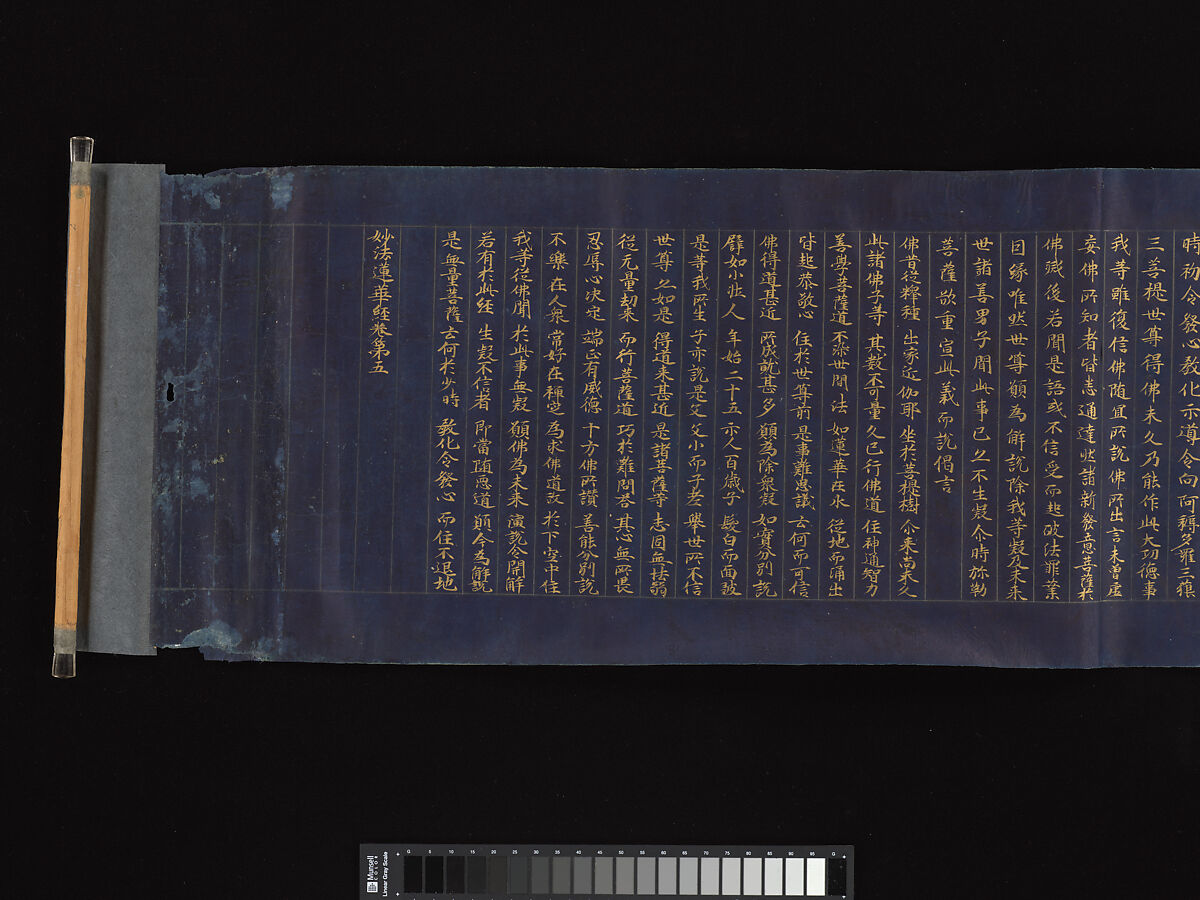 時初令發心教化示導令向阿耨多羅三藐
三菩提世尊得佛未久乃能作此大功德事
我等雖復信佛随宜所說佛所出言未曽虛
妄佛所知者皆悉通達然諸新發意菩薩於
佛滅後若聞是語或不信受而起破法罪業
因緣唯然世尊願為解說除我等疑及未来
世諸善男子聞此事已亦不生疑尒時弥勒
菩薩欲重宣此義而說偈言
佛昔從釋種 出家近伽耶 坐於菩提樹 尒来尚未久
此諸佛子等 其數不可量 久已行佛道 住神通智力
善學菩薩道 不染世間法 如蓮華在水 從地而涌出
皆起恭敬心 住於世尊前 是事難思議 云何而可信
佛得道甚近 所成就甚多 願為除衆疑 如實分別說
譬如少壯人 年始二十五 示人百歳子 髮白而面皺
是等我所生 子亦說是父 父少而子老 舉世所不信
世尊亦如是 得道来甚近 是諸菩薩等 志固無怯弱
從无量劫来 而行菩薩道 巧於難問荅 其心無所畏
忍辱心決定 端正有威德 十方佛所讃 善能分別說
不樂在人衆 常好在禪定 為求佛道故 於下空中住
我等從佛聞 於此事無疑 願佛為未来 演說令開解
若有於此経 生疑不信者 即當墮惡道 願今為解說
是無量菩薩 云何於少時 教化令發心 而住不退地
妙法蓮華経卷第五
Munsell COLOR
Linear Gray Scale
G 5 10 15 20 25 30 35 40 45 50 55 60 65 70 75 80 85 90 95 G